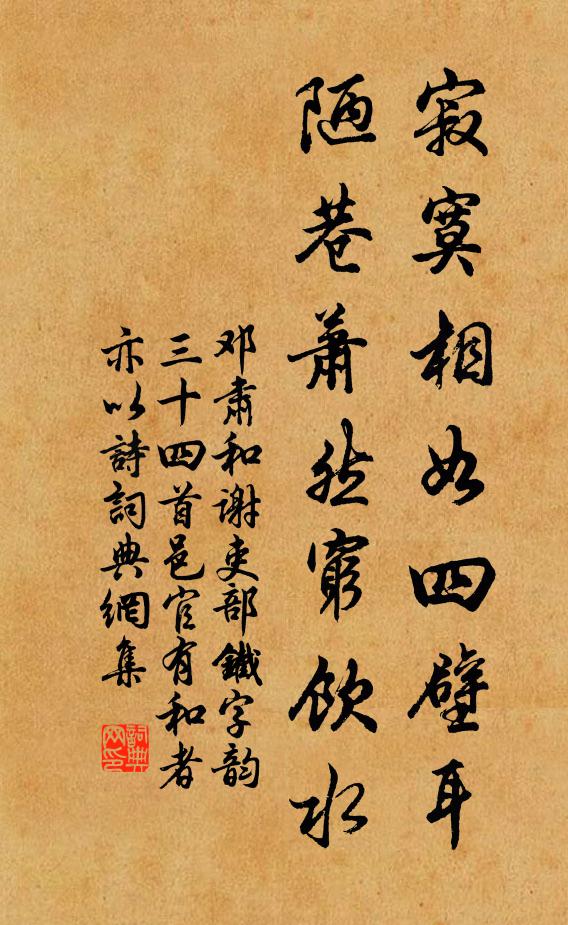 寂寞相如四壁耳
陋巷蕭然窮飲水
邓肅和谢吏部鐵字韵
三十四首邑官有和者
亦以詩詞典網集
詞典
网印